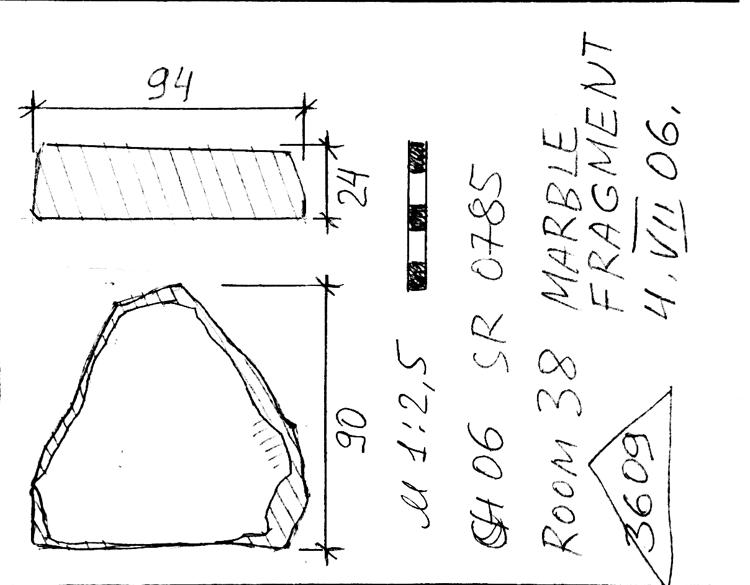 94
24
90
M 1:2,5
CH 06 SR 0785
ROOM 38 MARBLE
FRAGMENT
4.VII 06.
3609